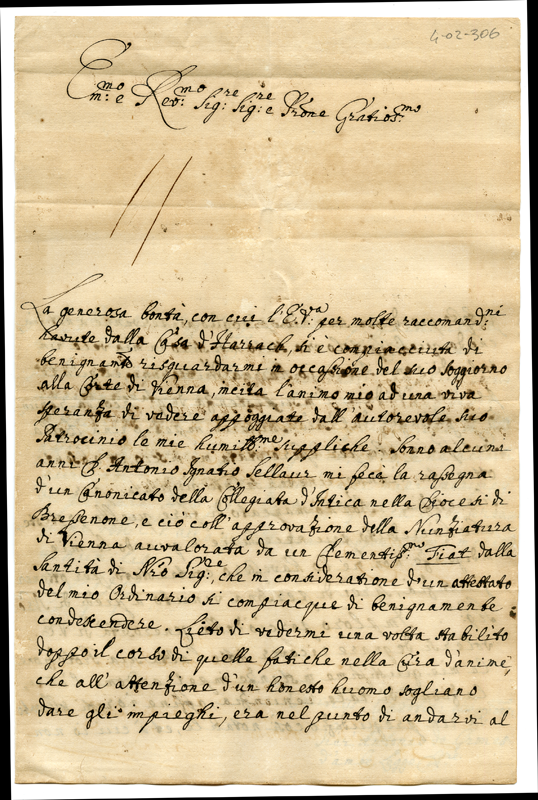 4-02-306
E.mo e Rev.mo Sig:re Sig:re e Prone Gratios:mo
La generosa bontà, con cui l'E.V.a per molte raccomand:ni
havute dalla Casa d'Harrach, si è compiacciuta di
benignam.te risguardarmi in occasione del suo soggiorno
alla Corte di Vienna, incita l'animo mio ad una viva
speranza di vedere appoggiate dall'autorevole suo
Patrocinio le mie humiliss.me suppliche. Sonno alcuni
anni Antonio Ignatio Fellaur mi fece la rassegna
d'un Canonicato della Collegiata d'Intica nella Diocesi di
Bressenone, e ciò coll'approvazione della Nunziatura
di Vienna avvalorata da un Clementiss:mo Fiat dalla
Santità di Nro Sig:re, che in consideratione d'un attestato
del mio Ordinario si compiacque di benignamente
condescendere. Lieto di vedermi una volta stabilito
doppo il corso di quelle fatiche nella Cura d'anime,
che all'attenzione d'un honesto huomo sogliano
dare gli impieghi, era nel punto di andarvi al